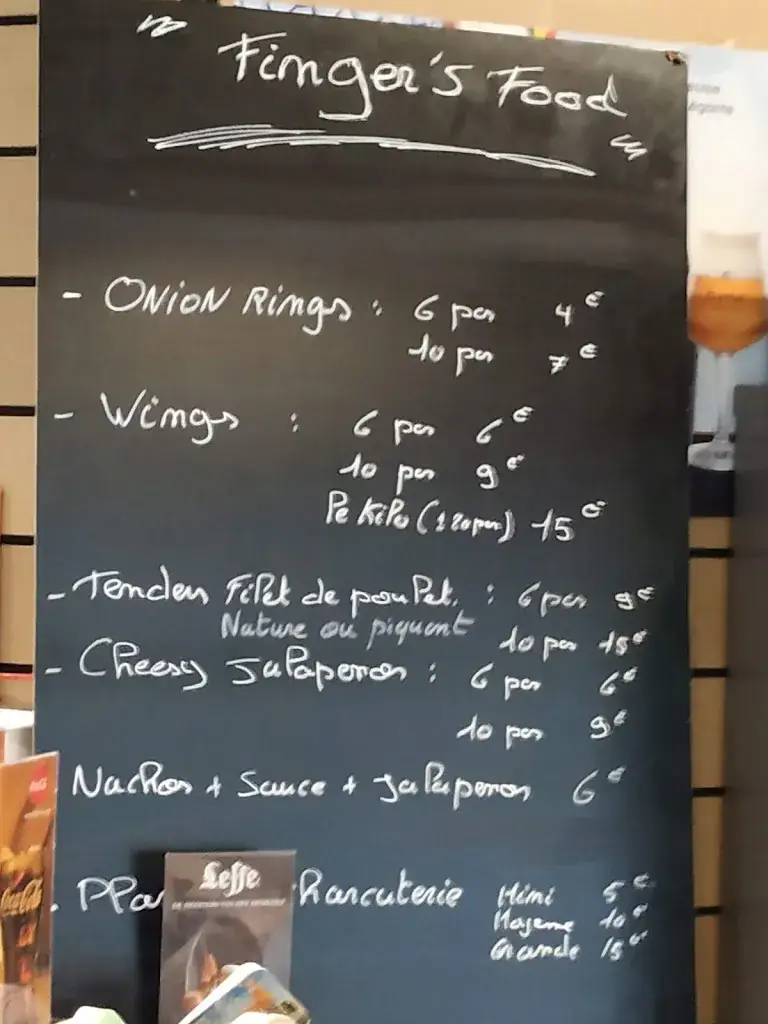 " Finger's Food "
- Onion Rings : 6 pcs 4€
10 pcs 7€
- Wings : 6 pcs 6€
10 pcs 9€
le kilo (±20pcs) 15€
- Tenders Filet de poulet. : 6 pcs 9€
Nature ou piquant 10 pcs 15€
- Cheesy Jalapenos : 6 pcs 6€
10 pcs 9€
Nachos + Sauce + Jalapenos 6€
Pla harcuterie Mini 5€
Moyenne 10€
Grande 15€
Leffe
Coca-Cola